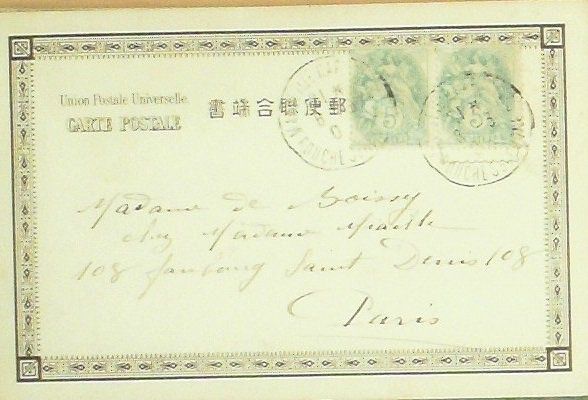 Union Postale Universelle
CARTE POSTALE
書端合聯便郵
5
5
Madame de Boissy
chez Madame Miaille
108 faubourg Saint Denis 108
Paris